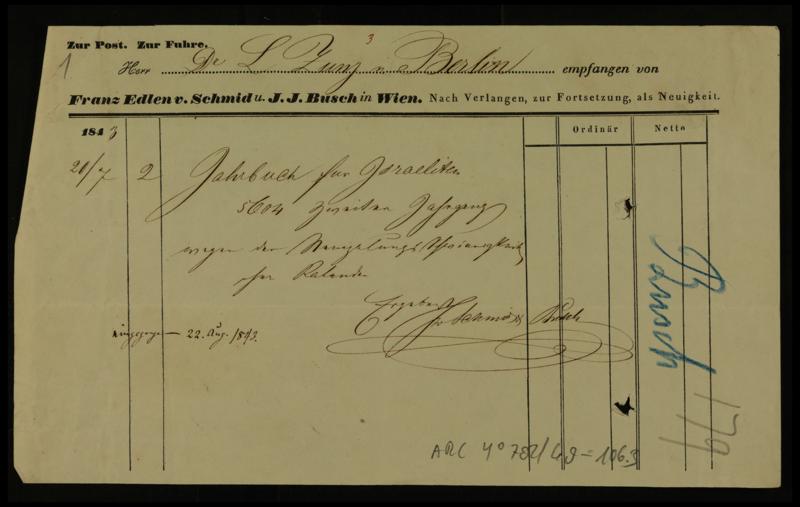 3
1
Zur Post. Zur Fuhre.
Herr Dr L Zunz in Berlin empfangen von
Franz Edlen v. Schmid u. J. J. Busch in Wien. Nach Verlangen, zur Fortsetzung, als Neuigkeit.
1843
Ordinär Netto
20/7 2 Jahrbuch für Israeliten
5604 zweiter Jahrgang
wegen der
ohne Kalender
Ergebenst
Schmid & Busch
eingegangen — 22. Aug. 1843.
Busch
179
ARC 4° 792/G9-106.3